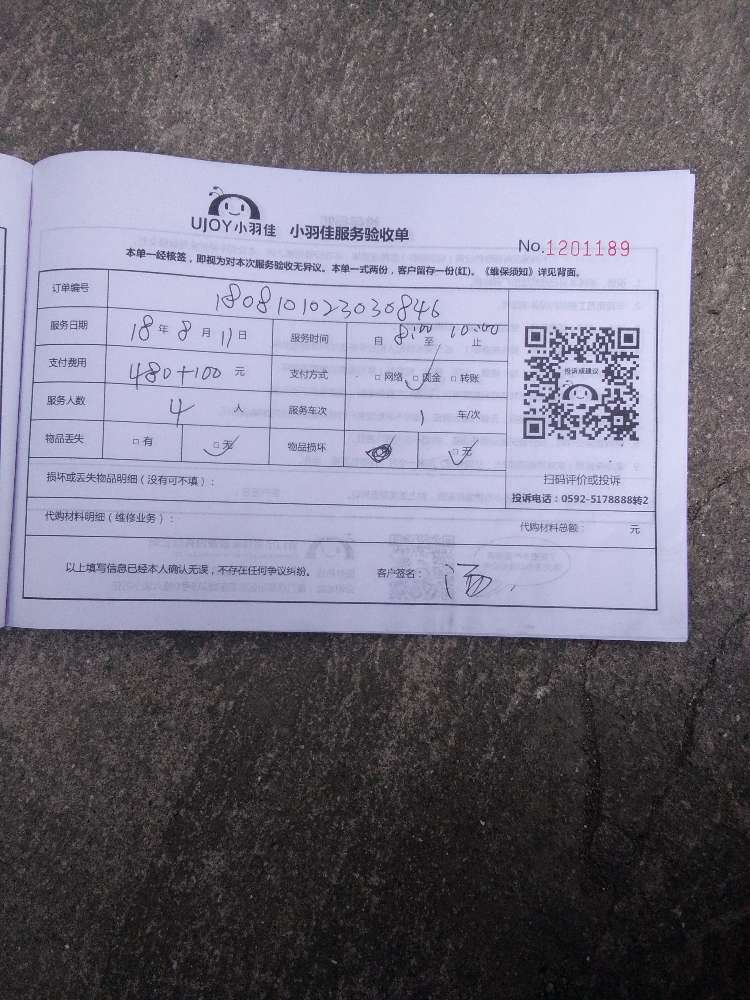 UJOY小羽佳 小羽佳服务验收单
No.1201189
本单一经核签，即视为对本次服务验收无异议。本单一式两份，客户留存一份(红)。《维保须知》详见背面。
订单编号 1808101023030846
服务日期 18年 8月 11日 服务时间 自 8:00 至 10:00 止
支付费用 480+100 元 支付方式 □网络 □现金 □转账
服务人数 4 人 服务车次 1 车/次
物品丢失 □有 □无 物品损坏 □无
投诉或建议
扫码评价或投诉
投诉电话：0592-5178888转2
损坏或丢失物品明细（没有可不填）：
代购材料明细（维修业务）： 代购材料总额 元
以上填写信息已经本人确认无误，不存在任何争议纠纷。 客户签名： 汤